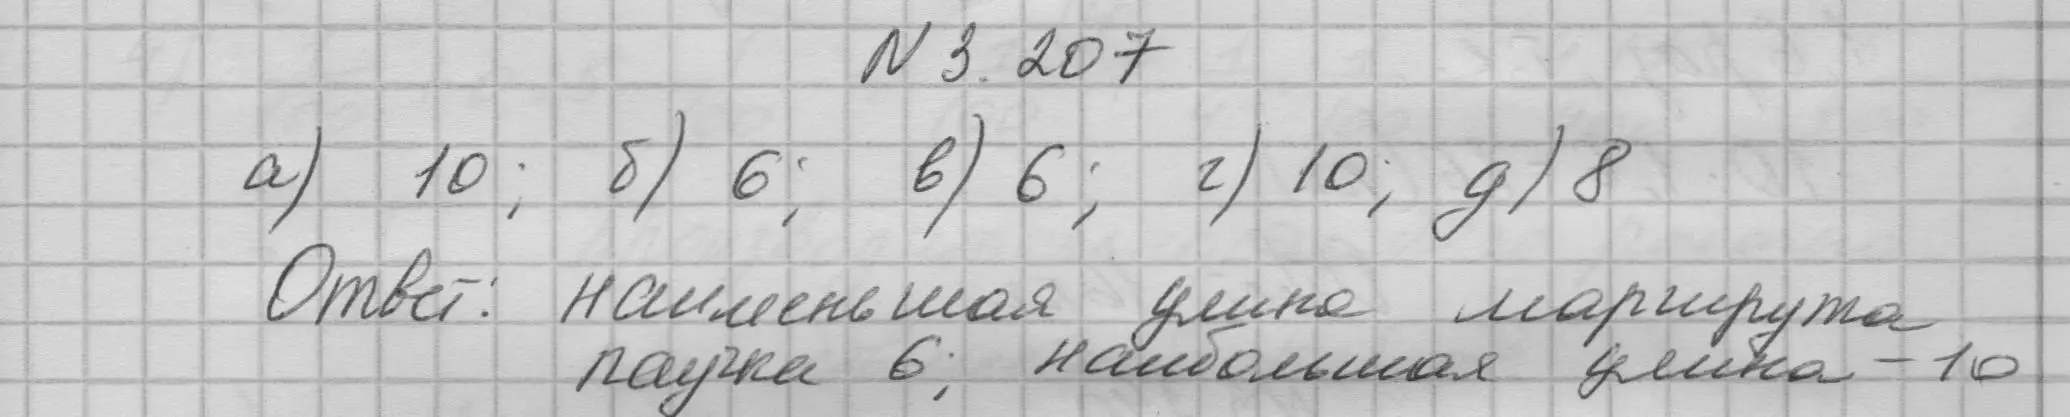 N 3.207
а) 10; б) 6; в) 6; г) 10; д) 8
Ответ: наименьшая длина маршрута
паучка 6; наибольшая длина - 10